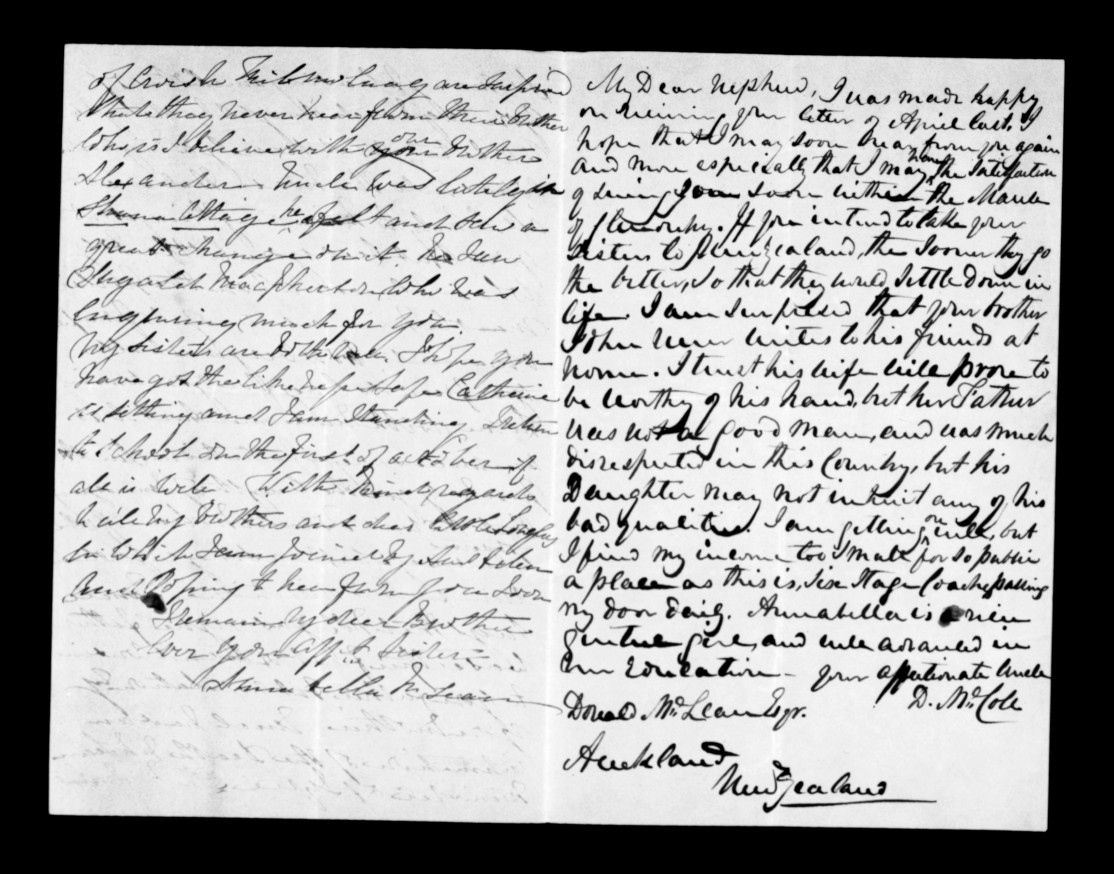 that they never hear from their Brother
who is I believe with our your Brother
Alexander. Uncle was lately in
Shuna Cottage he felt and saw a
great change on it. he saw
Dugald Macpherson who was
Enquiring much for you
My sisters are both well I hope you
have got the likenesses safe Catherine
is sitting and I am Standing. I return
to School on the first of October if
all is well. With kind regards
to all my Brothers and dear
in which I am joined by Aunt &
and Hoping to hear from you soon
I remain My dear Brother
Ever your aff't Sister
Anna bella McLean
My Dear Nephew, I was made happy
on receiving your letter of April last, I
hope that I may soon hear from you again
and more especially that I may have the satisfaction
of seeing you soon within the Manse
of Glenorchy. If you intend to take your
Sisters to New Zealand, the sooner they go
the better, so that they would settle down in
life. I am surprised that your brother
John never writes to his friends at
home. I trust his wife will prove to
be worthy of his hand, but her Father
was not a good man, and was much
disrespected in this Country, but his
Daughter may not inherit any of his
bad qualities. I am getting on well, but
I find my income too small for so public
a place as this is, six Stage Coaches passing
my door daily. Annabella is a nice
gentle girl, and well advanced in
her Education - your affectionate Uncle
D. McColl
Donald McLean Esqr.
Auckland
New Zealand